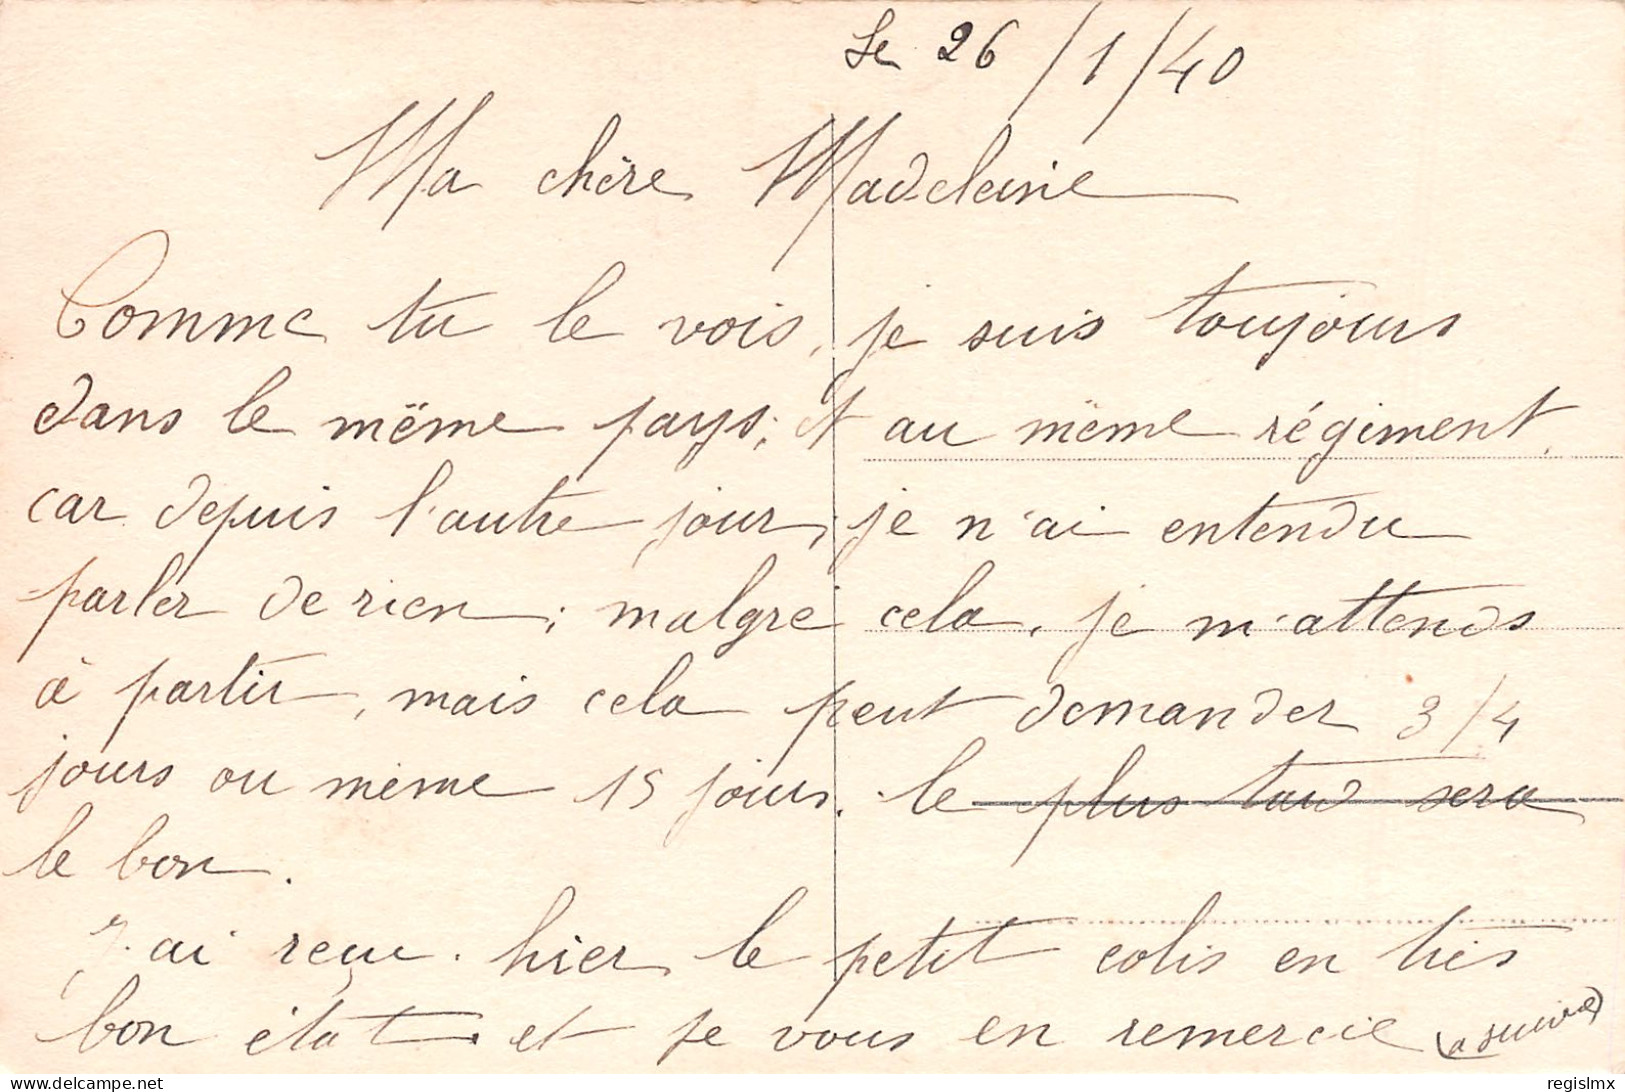 Le 26/1/40
Ma chère Madeleine
Comme tu le vois, je suis toujours
dans le même pays; et au même régiment,
car depuis l'autre jour, je n'ai entendu
parler de rien; malgré cela, je m'attends
à partir, mais cela peut demander 3/4
jours ou même 15 jours. le plus tard sera
le bon.
J'ai reçu hier le petit colis en très
bon état et je vous en remercie (a suivre)
delcampe.net
regislmx